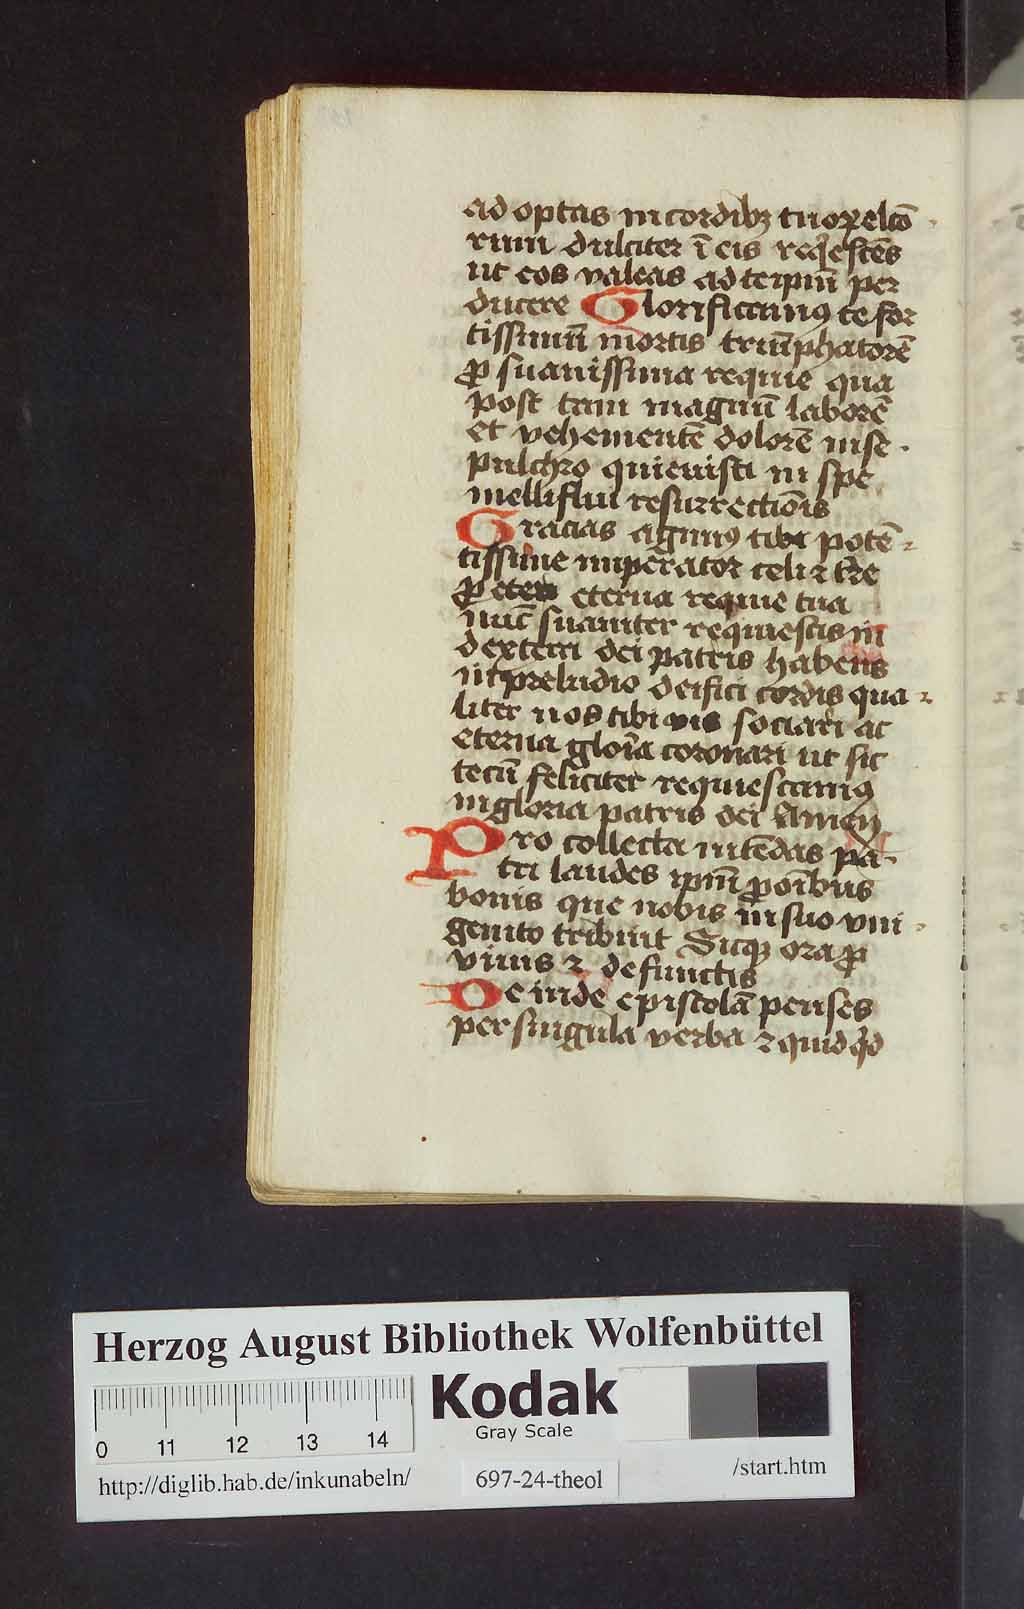 ad optas in cordibꝫ tuoꝝ elco
rum dulciter ī eis reqͥescēs
ut eos valeas ad teipm̄ per
ducere Glorificamꝰ te for
tissimū mortis triūphatorē
ꝓ suauissima requie qua
post tam magnū laborē
et vehementē dolorē in se
pulchro quieuisti in spe
melliflui resurrectiōis
Gracias agimꝰ tibi potē
tissime imperator celi ⁊ tr̄e
ꝓ eterna requie tua
nūc suauiter requiescis in
dextera dei patris habens
in preludio deifici cordis qua
liter nos tibi vis sociari ac
eterna glōia coronari ut sic
tecū feliciter requiescamꝰ
in gloria patris dei Amen
Pro collecta intēdas pa
tri laudes ipm̄ ꝓ oībus
bonis que nobis in suo vni
genito tribuit Sicqꝫ ora ꝓ
viuis ⁊ defunctis
Deinde epistolā penses
per singula verba ⁊ quid qͥd
Herzog August Bibliothek Wolfenbüttel
Kodak
Gray Scale
0 11 12 13 14
http://diglib.hab.de/inkunabeln/
697-24-theol
/start.htm